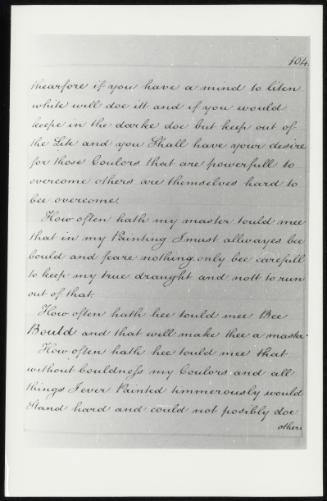 104.
thearfore if you have a mind to liten
white will doe itt and if you would
keepe in the darke doe but keep out of
the Lite and you Shall have your desire
for those Coulors that are powerfull to
overcome others are themselves hard to
bee overcome.
How often hath my master tould mee
that in my Painting I must allwayes bee
bould and feare nothing only bee carefull
to keep my true draught and nott to run
out of that.
How often hath hee tould mee Bee
Bould and that will make thee a master.
How often hath hee tould mee that
without Couldness my Coulors and all
things I ever Painted timmerously would
Stand hard and could not posibly doe
others